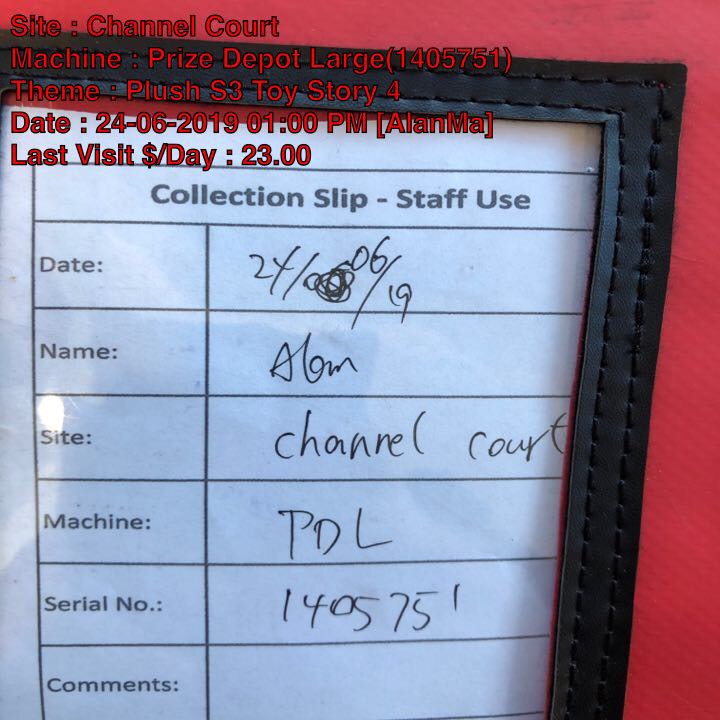 Site : Channel Court
Machine : Prize Depot Large(1405751)
Theme : Plush S3 Toy Story 4
Date : 24-06-2019 01:00 PM [AlanMa]
Last Visit $/Day : 23.00
Collection Slip - Staff Use
Date: 24/06/19
Name: Alan
Site: channel court
Machine: PDL
Serial No.: 1405751
Comments: